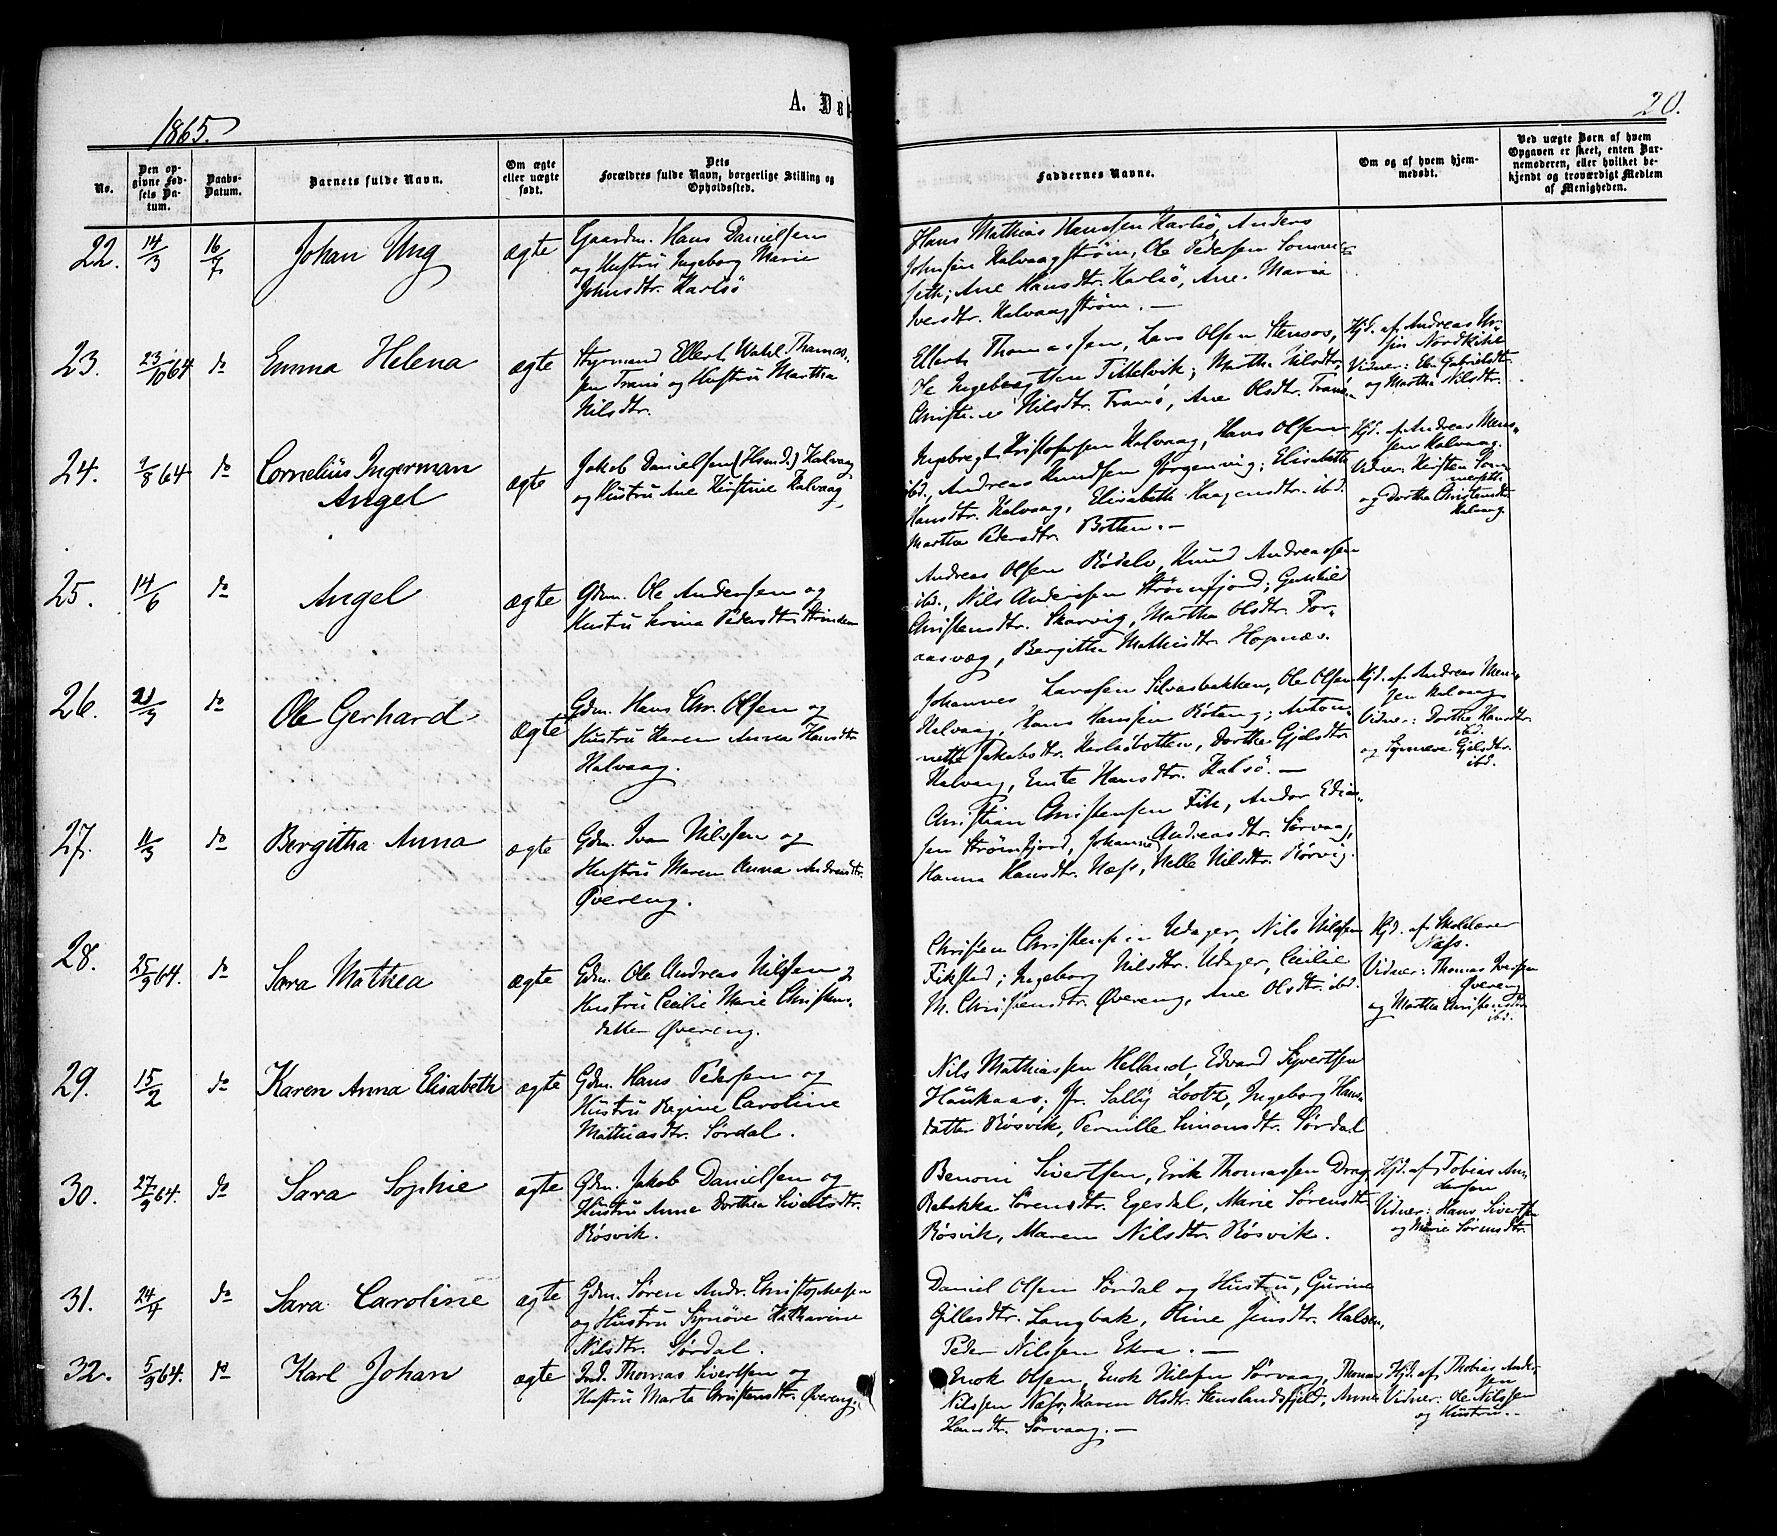 A. Døb
20.
1865.
No.
Den op-
givne Fød-
sels Da-
tum.
Daabs-
Datum.
Barnets fulde Navn.
Om ægte
eller uægte
født.
Dets
Forældres fulde Navn, borgerlige Stilling og
Opholdssted.
Faddernes Navne.
Om og af hvem hjem-
medøbt.
Ved uægte Barn af hvem
Opgaven er skeet, enten Bar-
nemoderen, eller hvilket be-
kjendt og troværdigt Medlem
af Menigheden.
22. 14/3 16/7 Johan Ung ægte
Gaardm. Hans Danielsen
og Hustru Ingeborg Marie
Johnsdtr. Karlsö
Hans Mathias Hanssen Karlsö, Anders
Johnsen Kalvaagström, Ole Pedersen Somme-
seth; Ane Hansdtr. Karlsö, Ane Marie
Iversdtr. Kalvaagström. —
23. 23/10 64 do Emma Helena ægte
Styrmand Ellert Wahl Thomas-
sen Tranö og Hustru Martha
Nilsdtr.
Ellert Thomassen, Lars Olsen Stensos,
Ole Ingebregtsen Tittelvik; Martha Nilsdtr,
Nilsdtr. Tranö, Ane Olsdtr. Tranö
Hjd. af Andreas
Vidner: Gabrielsdtr.
og Martha Nilsdtr.
24. 9/8 64 do Cornelius Ingerman
Angel ægte
Jakob Danielsen (Hsmd.) Kalvaag
og Hustru Ane Kirstine Kalvaag
Ingebregt Kristofersen Kalvaag, Hans Olsen
ibd., Andreas Knudsen Jörgenvig; Elisabeth
Hansdtr. Kalvaag, Elisabeth Haagensdtr. ibd.
Martha Pedersdtr. Botten. —
Hjd. af Andreas Mons-
sen Kalvaag.
Vidner: Kirsten Som-
merseth
og Dorthea Christensdtr.
Kalvaag.
25. 14/6 do Angel ægte
Gdm. Ole Andersen og
Hustru Serina Pedersdtr.
Andreas Olsen Rödelv, Knud Andreassen
ibd., Nils Anderssen Strömfjord; Gunhild
Christensdtr. Skarvig, Martha Olsdtr. For-
aasvæg, Bergitha Mathisdtr. Hopnæs.
26. 21/3 do Ole Gerhard ægte
Gdm. Hans Chr. Olsen og
Hustru Karen Anna Hansdtr
Kalvaag.
Johannes Larssen Silvasbakken, Ole Olsen
Kalvaag, Hans Hanssen Rötang; Anton-
nette Jakobsdtr. Karlsöbotten, Dorthe Gjelsdtr.
Kalvaag, Hansdtr. Kalsö. —
Hjd. af Andreas Mons-
sen Kalvaag
Vidner: Dorthe Hansdtr.
ibd.
og Synneve Gjelsdtr.
ibd.
27. 11/3 do Bergitha Anna ægte
Gdm. Ivar Nilssen og
Hustru Maren Anna Andreasdtr.
Övereng.
Christian Christensen Fik, Andor
sen Strömfjord, Johanne Andreasdtr. Sörvaag,
Hanna Hansdtr. Næss, Nelle Nilsdtr. Rörvig.
28. 25/9 64. do Sara Mathea ægte
Gdm. Ole Andreas Nilssen &
Hustru Cecilie Marie Christens-
datter Övereng.
Christen Christensen Udager, Nils Nilssen
Fikstad; Ingeborg Nilsdtr. Udager, Cecilie
M. Christensdtr. Övereng, Ane Olsdtr. ibd.
Hjd. af Skolelærer
Næss.
Vidner: Thomas Iverssen
Övereng
og Martha Christensdtr.
ibd.
29. 15/2 do Karen Anna Elisabeth ægte
Gdm. Hans Pedersen og
Hustru Regine Caroline
Mathiasdtr. Sördal.
Nils Mathiassen Helland, Edvard Syvertsen
Haukaas; Jfr. Sally Lootz, Ingeborg Hans-
datter Rösvik, Pernille Simonsdtr. Sördal
30. 27/9 64. do Sara Sophie ægte
Gdm. Jakob Danielsen og
Hustru Anne Dorthea Sivertsdtr.
Rösvik.
Benoni Sivertsen, Erik Thomassen Drag,
Rebekka Sörensdtr. Egesdal, Marie Sörensdtr.
Rösvik, Maren Nilsdtr. Rösvik.
Hjd. af Tobias An-
dersen
Vidner: Hans Sivertsen
og Marie Sörensdtr.
31. 24/4 do Sara Caroline ægte
Gdm. Sören Andr. Christophersen
og Hustru Synöve Katharine
Nilsdtr. Sördal.
Daniel Olsen Sördal og Hustru, Gurine
Gillesdtr. Langbak, Oline Jensdtr. Halsen,
Peder Nilssen Ekra. —
32. 5/9 64. do Karl Johan ægte
Ind. Thomas Sivertsen og
Hustru Marta Christensdtr. Övereng.
Enok Olsen, Enok Nilssen Sörvaag, Thomas
Nilssen Næss, Karen Olsdtr. Stenslandsfjeld, Anne
Hansdtr. Sörvaag. —
Hjd. af Thobias Ander-
sen
Vidner: Ole Nilssen
og Hustru.